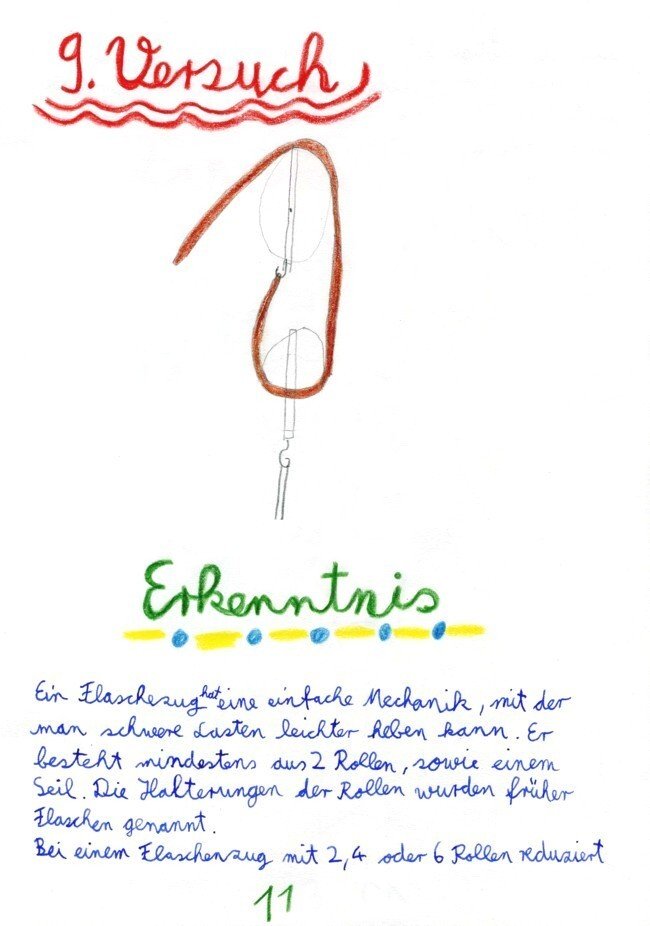 9. Versuch
Erkenntnis
Ein Flaschezug hat eine einfache Mechanik, mit der
man schwere Lasten leichter heben kann. Er
besteht mindestens aus 2 Rollen, sowie einem
Seil. Die Halterungen der Rollen wurden früher
Flaschen genannt.
Bei einem Flaschenzug mit 2, 4 oder 6 Rollen reduziert
11